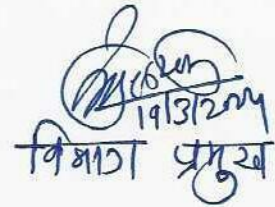 19/3/2024
विभाग प्रमुख